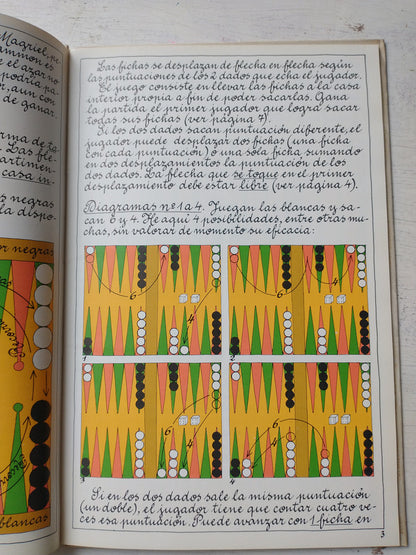 Magriel, pe-
ammon es
e el azar no
podría pa-
r, aun con
de ganar.
rma de ta-
. Las fle-
artinen-
casa in-
negras
la dispo-
or negras
blancas
Las fichas se desplazan de flecha en flecha según
las puntuaciones de los 2 dados que echa el jugador.
El juego consiste en llevar las fichas a la casa
interior propia a fin de poder sacarlas. Gana
la partida el primer jugador que logra sacar
todas sus fichas (ver página 7).
Si los dos dados sacan puntuación diferente, el
jugador puede desplazar dos fichas (una ficha
con cada puntuación) o una sola ficha, sumando
en dos desplazamientos la puntuación de los
dos dados. La flecha que se toque en el primer
desplazamiento debe estar libre (ver página 4).
Diagramas nº 1 a 4. Juegan las blancas y sa-
can 6 y 4. He aquí 4 posibilidades, entre otras mu-
chas, sin valorar de momento su eficacia:
6
4
1
6
4
2
6
4
3
6
4
4
Si en los dos dados sale la misma puntuación
(un doble), el jugador tiene que contar cuatro ve-
ces esa puntuación. Puede avanzar con 1 ficha en
3